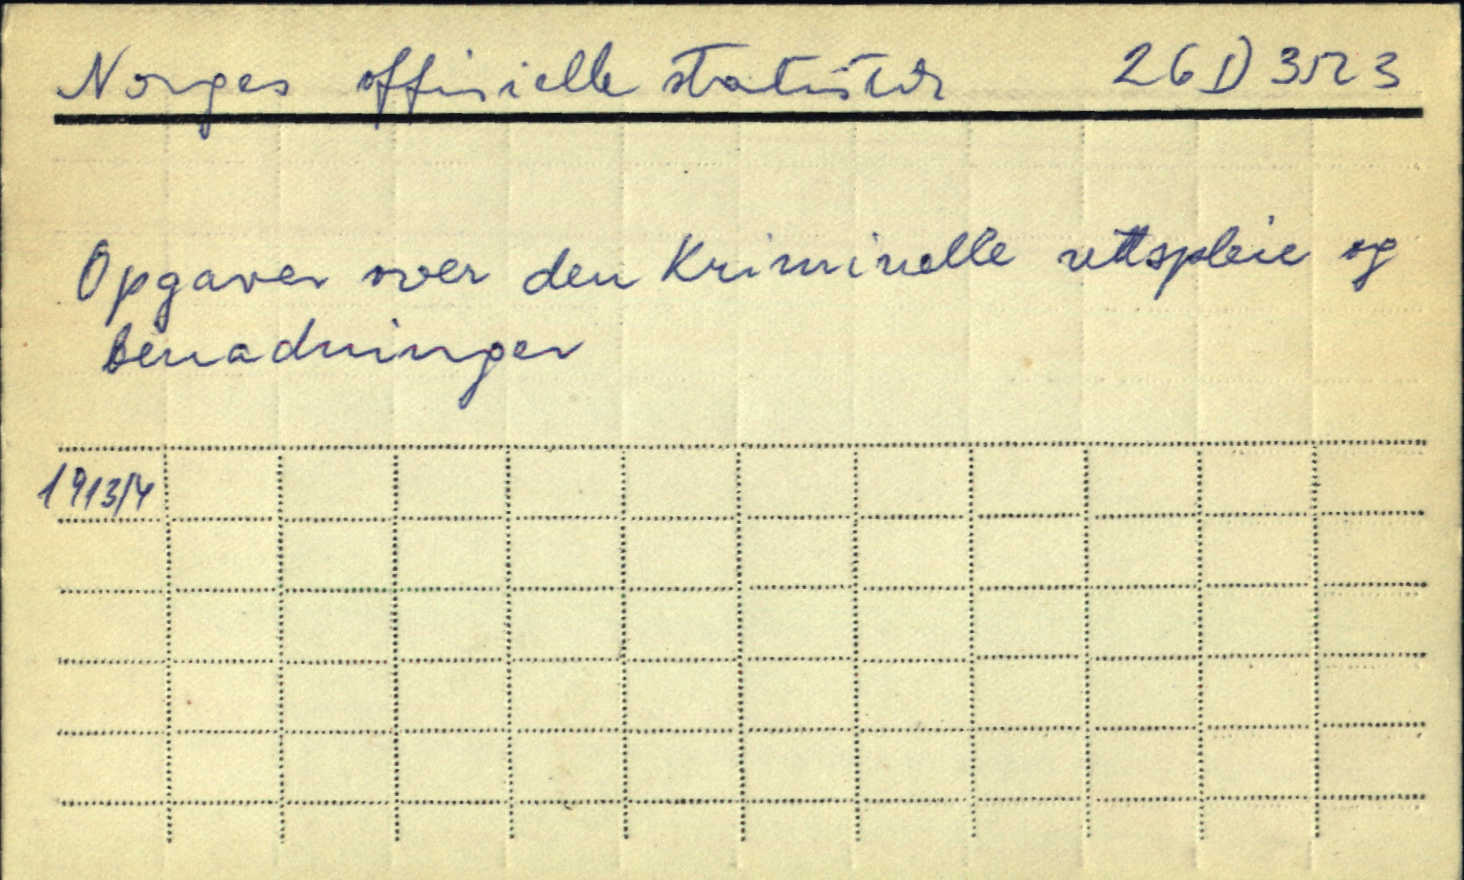 Norges offisielle statistikk 26 D 3523
Opgaver over den kriminelle rettspleie og
benadninger
1913/4